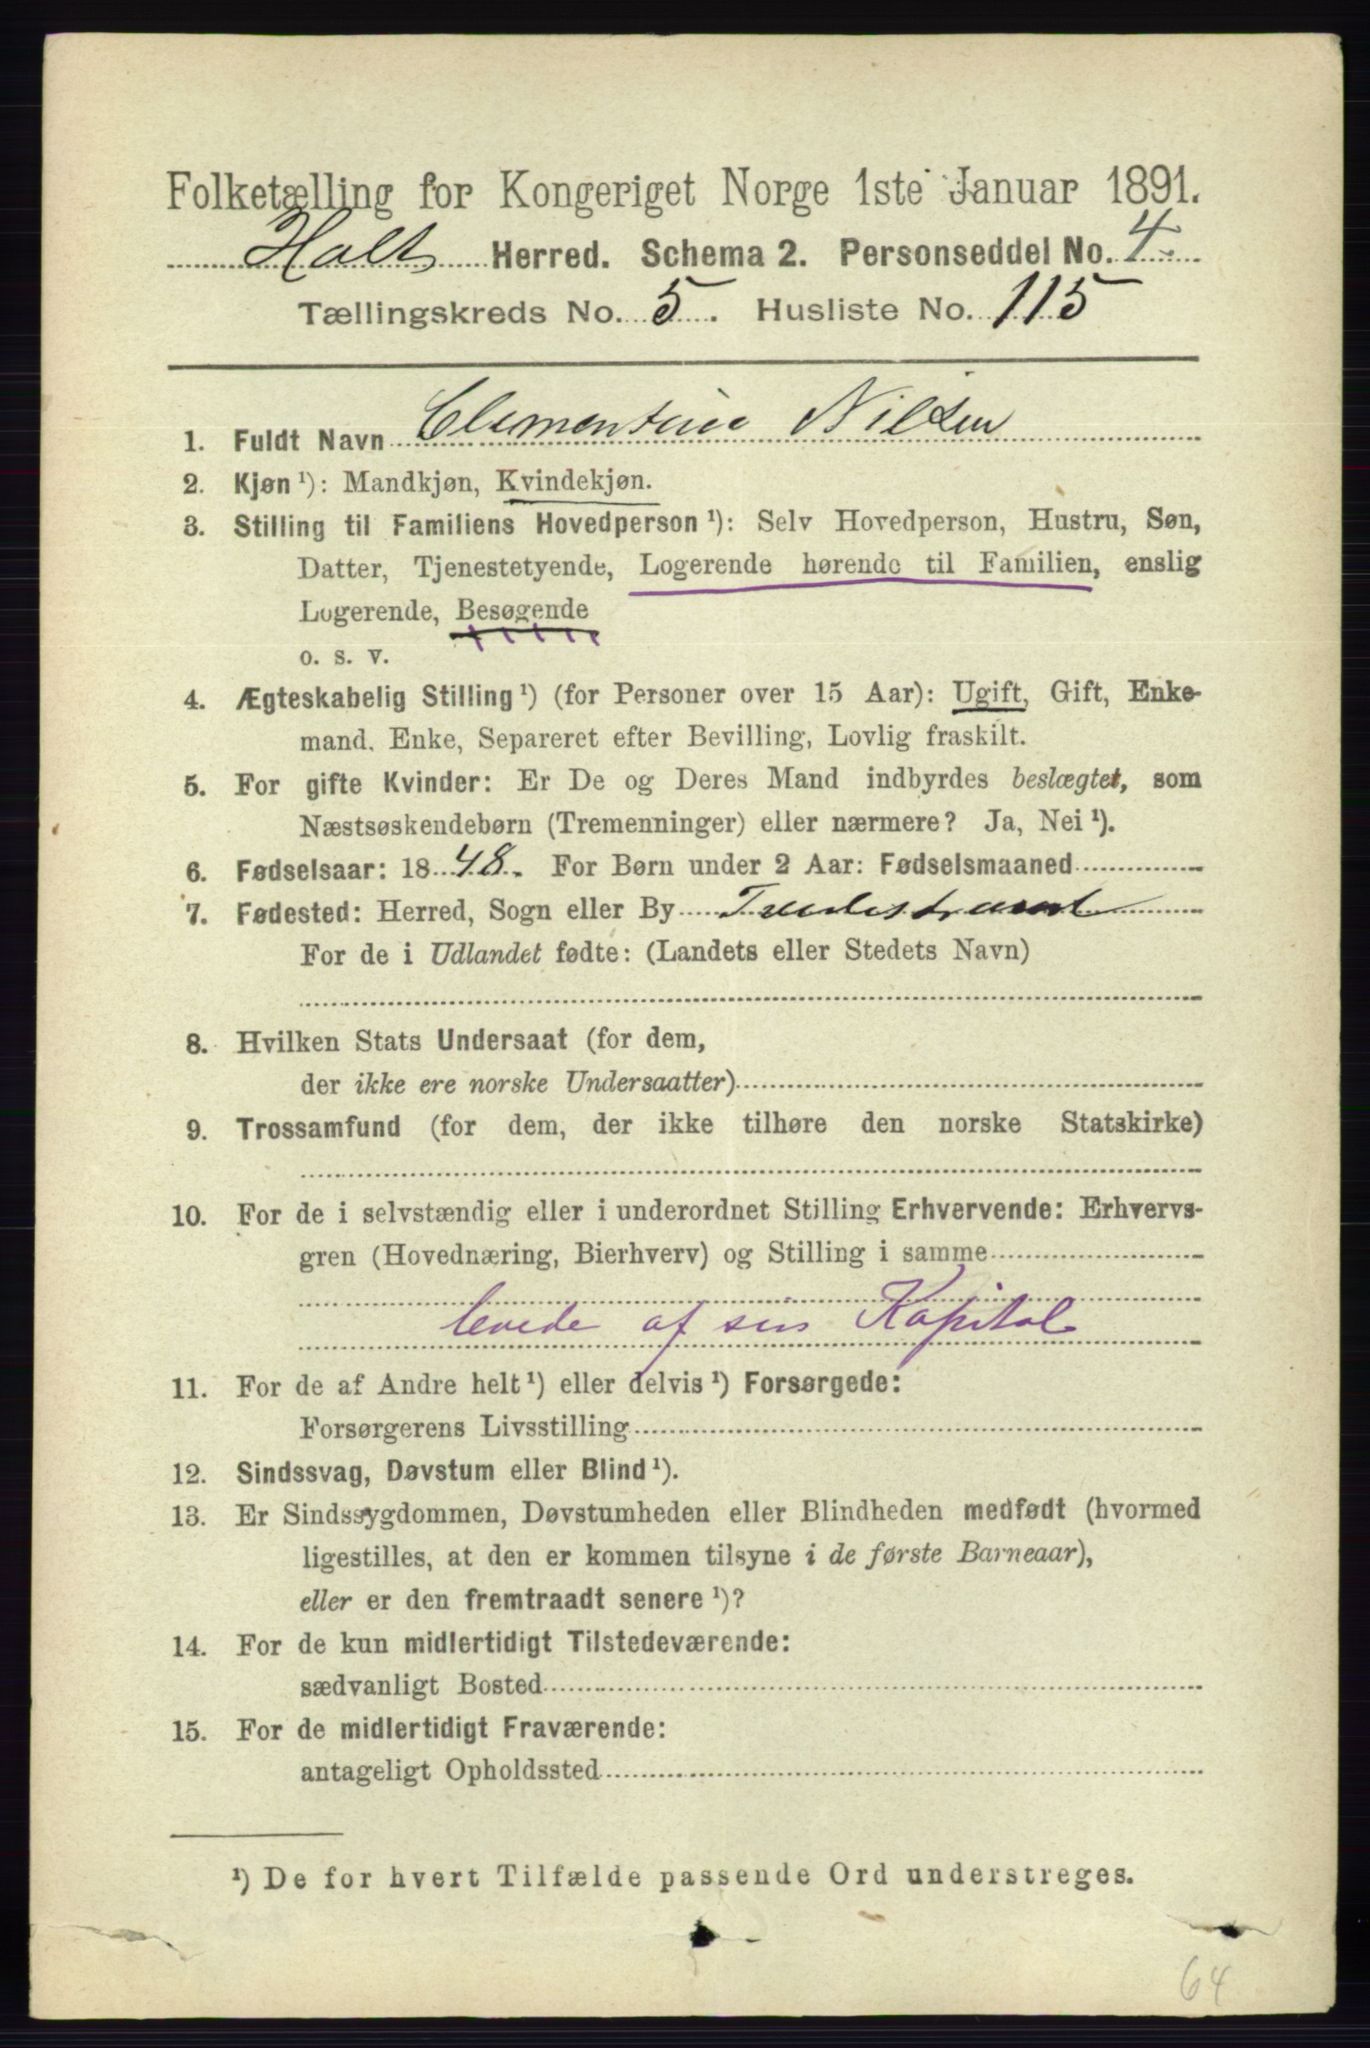 Folketælling for Kongeriget Norge 1ste Januar 1891.
Holt Herred. Schema 2. Personseddel No. 4.
Tællingskreds No. 5. Husliste No. 115
1. Fuldt Navn Clementine Nilsen
2. Kjøn ¹): Mandkjøn, Kvindekjøn.
3. Stilling til Familiens Hovedperson ¹): Selv Hovedperson, Hustru, Søn,
Datter, Tjenestetyende, Logerende hørende til Familien, enslig
Logerende, Besøgende
o. s. v.
4. Ægteskabelig Stilling ¹) (for Personer over 15 Aar): Ugift, Gift, Enke-
mand, Enke, Separeret efter Bevilling, Lovlig fraskilt.
5. For gifte Kvinder: Er De og Deres Mand indbyrdes beslægtet, som
Næstsøskendebørn (Tremenninger) eller nærmere? Ja, Nei ¹).
6. Fødselsaar: 1848. For Børn under 2 Aar: Fødselsmaaned
7. Fødested: Herred, Sogn eller By Tvedestrand
For de i Udlandet fødte: (Landets eller Stedets Navn)
8. Hvilken Stats Undersaat (for dem,
der ikke ere norske Undersaatter)
9. Trossamfund (for dem, der ikke tilhøre den norske Statskirke)
10. For de i selvstændig eller i underordnet Stilling Erhvervende: Erhvervs-
gren (Hovednæring, Bierhverv) og Stilling i samme
levede af sin Kapital
11. For de af Andre helt ¹) eller delvis ¹) Forsørgede:
Forsørgerens Livsstilling
12. Sindssvag, Døvstum eller Blind ¹).
13. Er Sindssygdommen, Døvstumheden eller Blindheden medfødt (hvormed
ligestilles, at den er kommen tilsyne i de første Barneaar),
eller er den fremtraadt senere ¹)?
14. For de kun midlertidigt Tilstedeværende:
sædvanligt Bosted
15. For de midlertidigt Fraværende:
antageligt Opholdssted
¹) De for hvert Tilfælde passende Ord understreges.
64